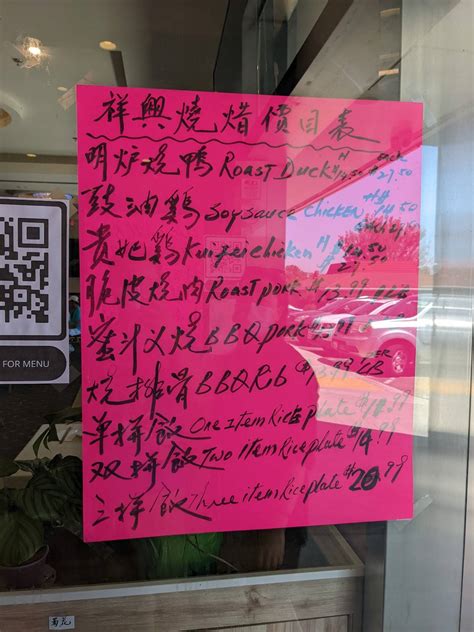 祥興燒焟價目表
明炉烧鴨 Roast Duck H $14.50 EACH $27.50
豉油鷄 Soy sauce chicken H $14.50
EACH 27.50
贵妃鷄 Kungfei chicken H $14.50
$27.50
脆皮烧肉 Roast pork $13.99 LB
蜜汁义烧 BBQ pork $13.99
烧排骨 BBQ Rib $13.99 PER LB
单拼飯 One Item Rice plate
双拼飯 Two item Rice plate
三拼飯 Three item Rice plate $20.99
FOR MENU
菊花